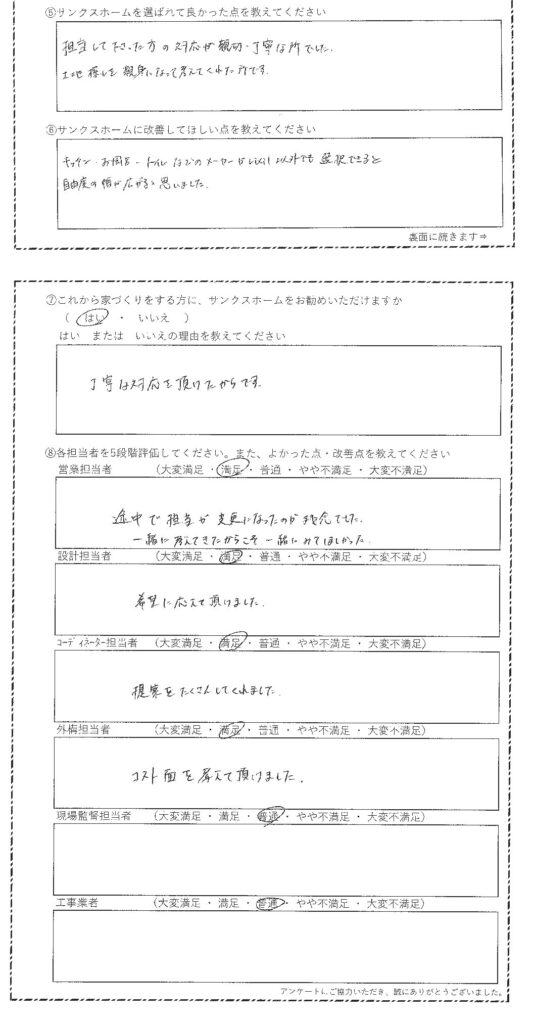 ⑤サンクスホームを選ばれて良かった点を教えてください
担当して下さった方の対応が親切・丁寧な所でした。
土地探しを親身になって考えてくれた所です。
⑥サンクスホームに改善してほしい点を教えてください
キッチン・お風呂・トイレなどのメーカーがLIXIL以外でも選択できると
自由度の幅が広がると思いました。
裏面に続きます⇒
⑦これから家づくりをする方に、サンクスホームをお勧めいただけますか
( はい ・ いいえ )
はい または いいえの理由を教えてください
丁寧な対応を頂けたからです。
⑧各担当者を5段階評価してください。また、よかった点・改善点を教えてください
営業担当者 (大変満足 ・ 満足 ・ 普通 ・ やや不満足 ・ 大変不満足)
途中で担当が変更になったのが残念でした。
一緒に考えてきたからこそ、一緒にみてほしかった。
設計担当者 (大変満足 ・ 満足 ・ 普通 ・ やや不満足 ・ 大変不満足)
希望に応えて頂けました。
コーディネーター担当者 (大変満足 ・ 満足 ・ 普通 ・ やや不満足 ・ 大変不満足)
提案をたくさんしてくれました。
外構担当者 (大変満足 ・ 満足 ・ 普通 ・ やや不満足 ・ 大変不満足)
コスト面を考えて頂けました。
現場監督担当者 (大変満足 ・ 満足 ・ 普通 ・ やや不満足 ・ 大変不満足)
工事業者 (大変満足 ・ 満足 ・ 普通 ・ やや不満足 ・ 大変不満足)
アンケートにご協力いただき、誠にありがとうございました。